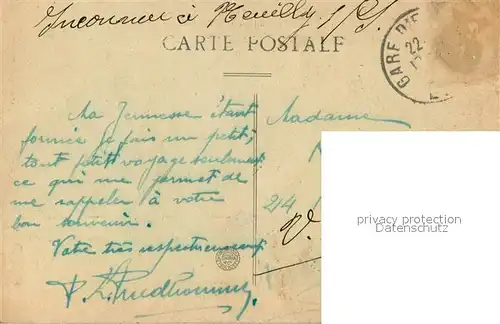 Inconnue à Neuilly s/S.
CARTE POSTALE
GARE D'E
22
Ma Jeunesse étant
formée je fais un petit,
tout petit voyage seulement
ce qui me permet de
me rappeler à votre
bon souvenir.
Votre très respectueusement
P. L. Prudhomme
Madame
214
V.
privacy protection
Privatsphärenschutz